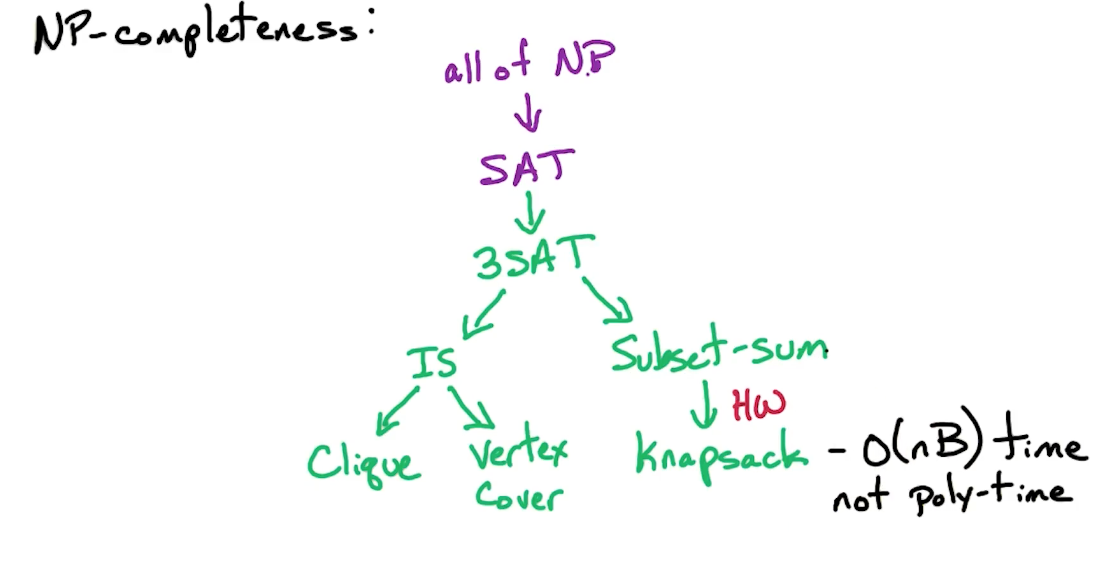 NP-completeness:
all of NP
↓
SAT
↓
3SAT
↙ ↘
IS
Subset-sum
↙ ↘
↓ HW
Clique
Vertex
Cover
Knapsack - O(nB) time
not poly-time